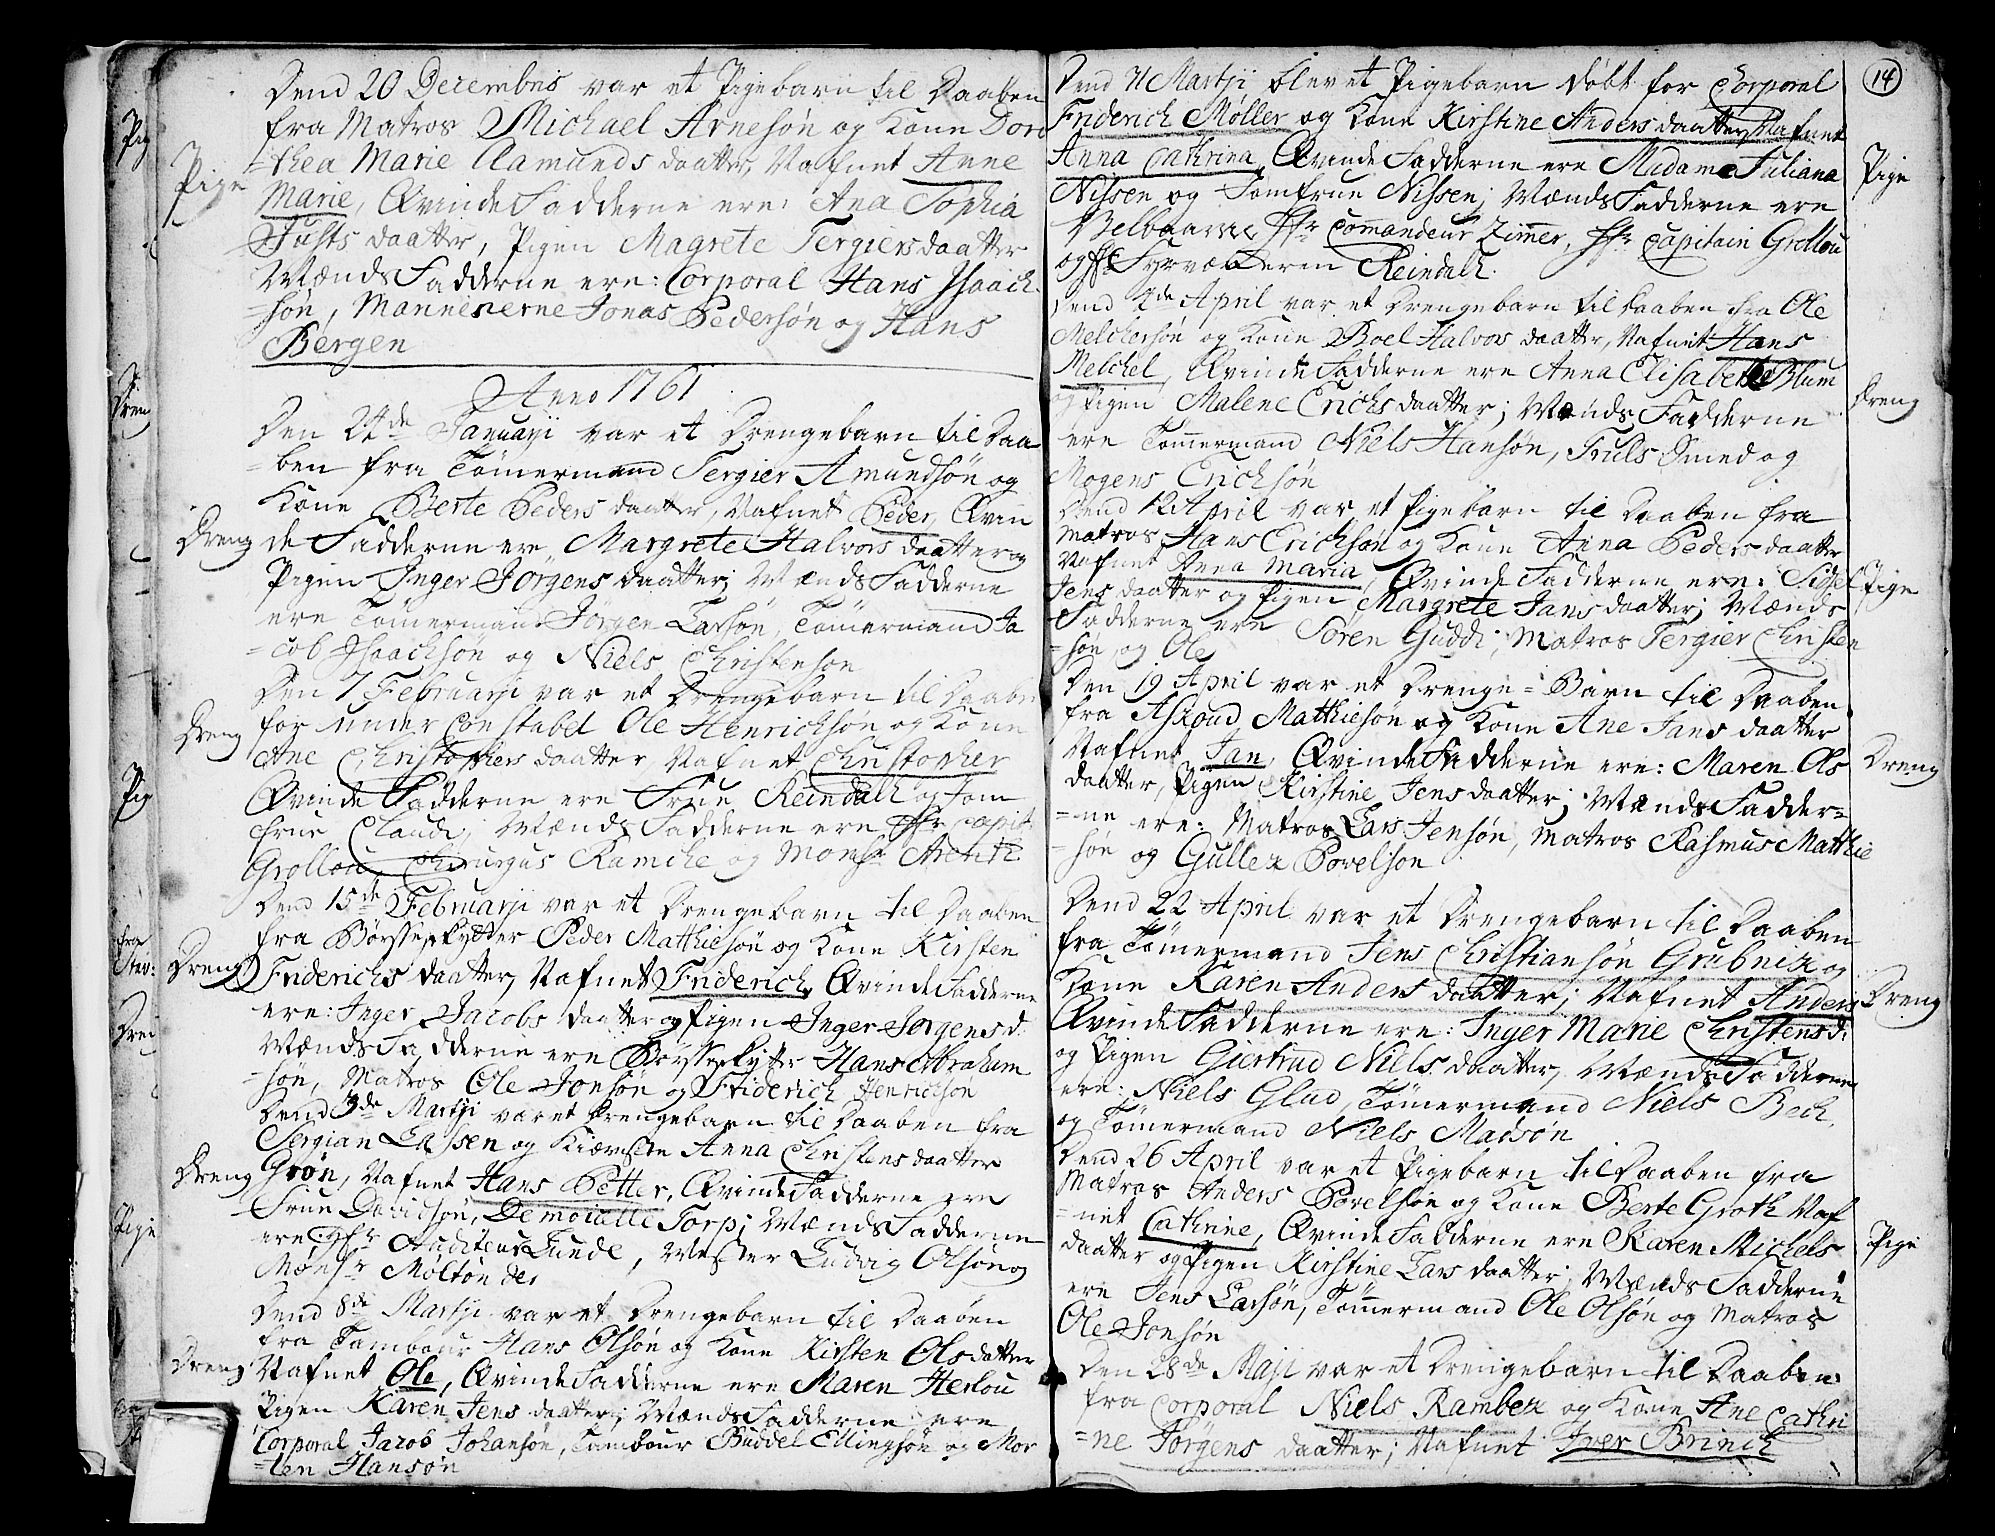 Dend 20 Decembris var et Pigebarn til Daaben
fra Matros Michael Arnesøn og Kone Doro
=thea Marie Aamunds daatter, Nafnet Anne
Pige
Marie, QvindeFadderne ere: Ana Sophia
Justs daatter, Pigen Magrete Tergiersdaatter
MændsFadderne ere: Corporal Hans Isaach
=søn, Mannenerne Jonas Pedersøn og Hans
Bergen
Anno 1761
Den 24de Januarii var et Drengebarn til Daa
=ben fra Tømermand Tergier Amundsøn og
Kone Berte Peders daatter, Nafnet Peder, Qvin
Dreng
de Fadderne ere Margrete Halvors daatter og
Pigen Inger Jørgens daatter; MændsFadderne
ere Tømermand Jørgen Larsøn, Tømermand Ja
=cob Isaachsøn og Niels Christensøn
Den 7 Februarii var et Drengebarn til Daaben
Dreng
for under Constabel Ole Henrichsøn og Kone
Ane Christophers daatter Nafnet Christopher
Qvinde Fadderne ere Frue Reindalh og Jom
frue Claudi, MændsFadderne ere Hr Capit
Grollou, Chirurgus Ramche og Monsr Arentz
Dend 15de Februarii var et Drengebarn til Daaben
fra Bøsseskytter Peder Mathiesøn og Kone Kirsten
Dreng
Friderichs daatter, Nafnet Friderich, QvindeFadderne
ere: Inger Jacobs daatter og Pigen Inger Jørgensd:
MændsFadderne ere Bøsseskytter Hans Abraham
=søn, Matros Ole Jonsøn og Friderich Henrichsøn
Dend 3de Martii var et Drengebarn til Daaben fra
Sergian Lassen og Kiæreste Anna Christens daatter
Dreng
Grøn, Nafnet Hans Petter, QvindeFadderne ere
Frue Davidsøn, Demoiselle Torp; MændsFadderne
ere: Hr Auditeur Lunde, Mester Ludvig Olsøn og
Monsr
Dend 8de Martii var et Drengebarn til Daaben
fra Tambour Hans Olsøn og Kone Kirsten Olsdatter
Dreng
Nafnet Ole, QvindeFadderne ere Maren Herlou
Pigen Karen Jens daatter; MændsFadderne ere
Corporal Jacob Johansøn, Tambour Buddel Ellingsøn og Mor
=ten Hansøn
14
Dend 11 Martii blev et Pigebarn døbt for Corporal
Friderich Møller og Kone Kirstine Anders daatter, Nafnet
Anna Cathrina, QvindeFadderne ere Madame Juliana
Pige
Nissen og Jomfrue Nissen; MændsFadderne ere
Hr Comandeur Zimer, Hr Capitain Grollou
og Hr Reindalh.
Dend 2de April var et Drengebarn til Daaben fra Ole
Melchersøn og Kone Boel Halvors daatter, Nafnet Hans
Melchel, QvindeFadderne ere Anna Elisabeth Blum
Dreng
og Pigen Malene Erichs daatter; MændsFadderne
ere Tømermand Niels Hansøn, Truls Smed og
Mogens Erichsøn
Dend 12 April var et Pigebarn til Daaben fra
Matros Hans Erichsøn og Kone Anna Peders daatter
Nafnet Anna Maria, QvindeFadderne ere: Sidsel
Pige
Jens daatter og Pigen Margrete Jans daatter; Mænds
Fadderne ere Søren Guddi; Matros Tergier Christen
=søn og Ole
Den 19 April var et Drenge=Barn til Daaben
fra Asloud Matthiesøn og Kone Ane Jans daatter
Nafnet Jan, QvindeFadderne ere: Maren Ols
Dreng
daatter, Pigen Kirstine Jens daatter; MændsFadder=
=ne ere: Matros Lars Jensøn, Matros Rasmus Matthie
=søn og Gullex Povelsøn
Dend 22 April var et Drengebarn til Daaben
fra Tømermand Jens Christiansøn Grubnix og
Kone Karen Anders daatter; Nafnet Anders
Dreng
QvindeFadderne ere: Inger Marie Christensd:
og Pigen Giertrud Niels daatter, MændsFadderne
ere: Niels Glud, Tømermand Niels Bech,
og Tømermand Niels Madsøn
Dend 26 April var et Pigebarn til Daaben fra
Matros Anders Povelsøn og Kone Berte Groth Naf
=net Cathrine, QvindeFadderne ere Karen Michels
Pige
daatter og Pigen Kirstine Lars daatter; MændsFadderne
ere Jens Larsøn, Tømermand Ole Olsøn og Matros
Ole Jonsøn
Den 28de Maji var et Drengebarn til Daaben
fra Corporal Niels Rambex og Kone Ane Cathri
=ne Jørgens daatter; Nafnet Iver Brinch